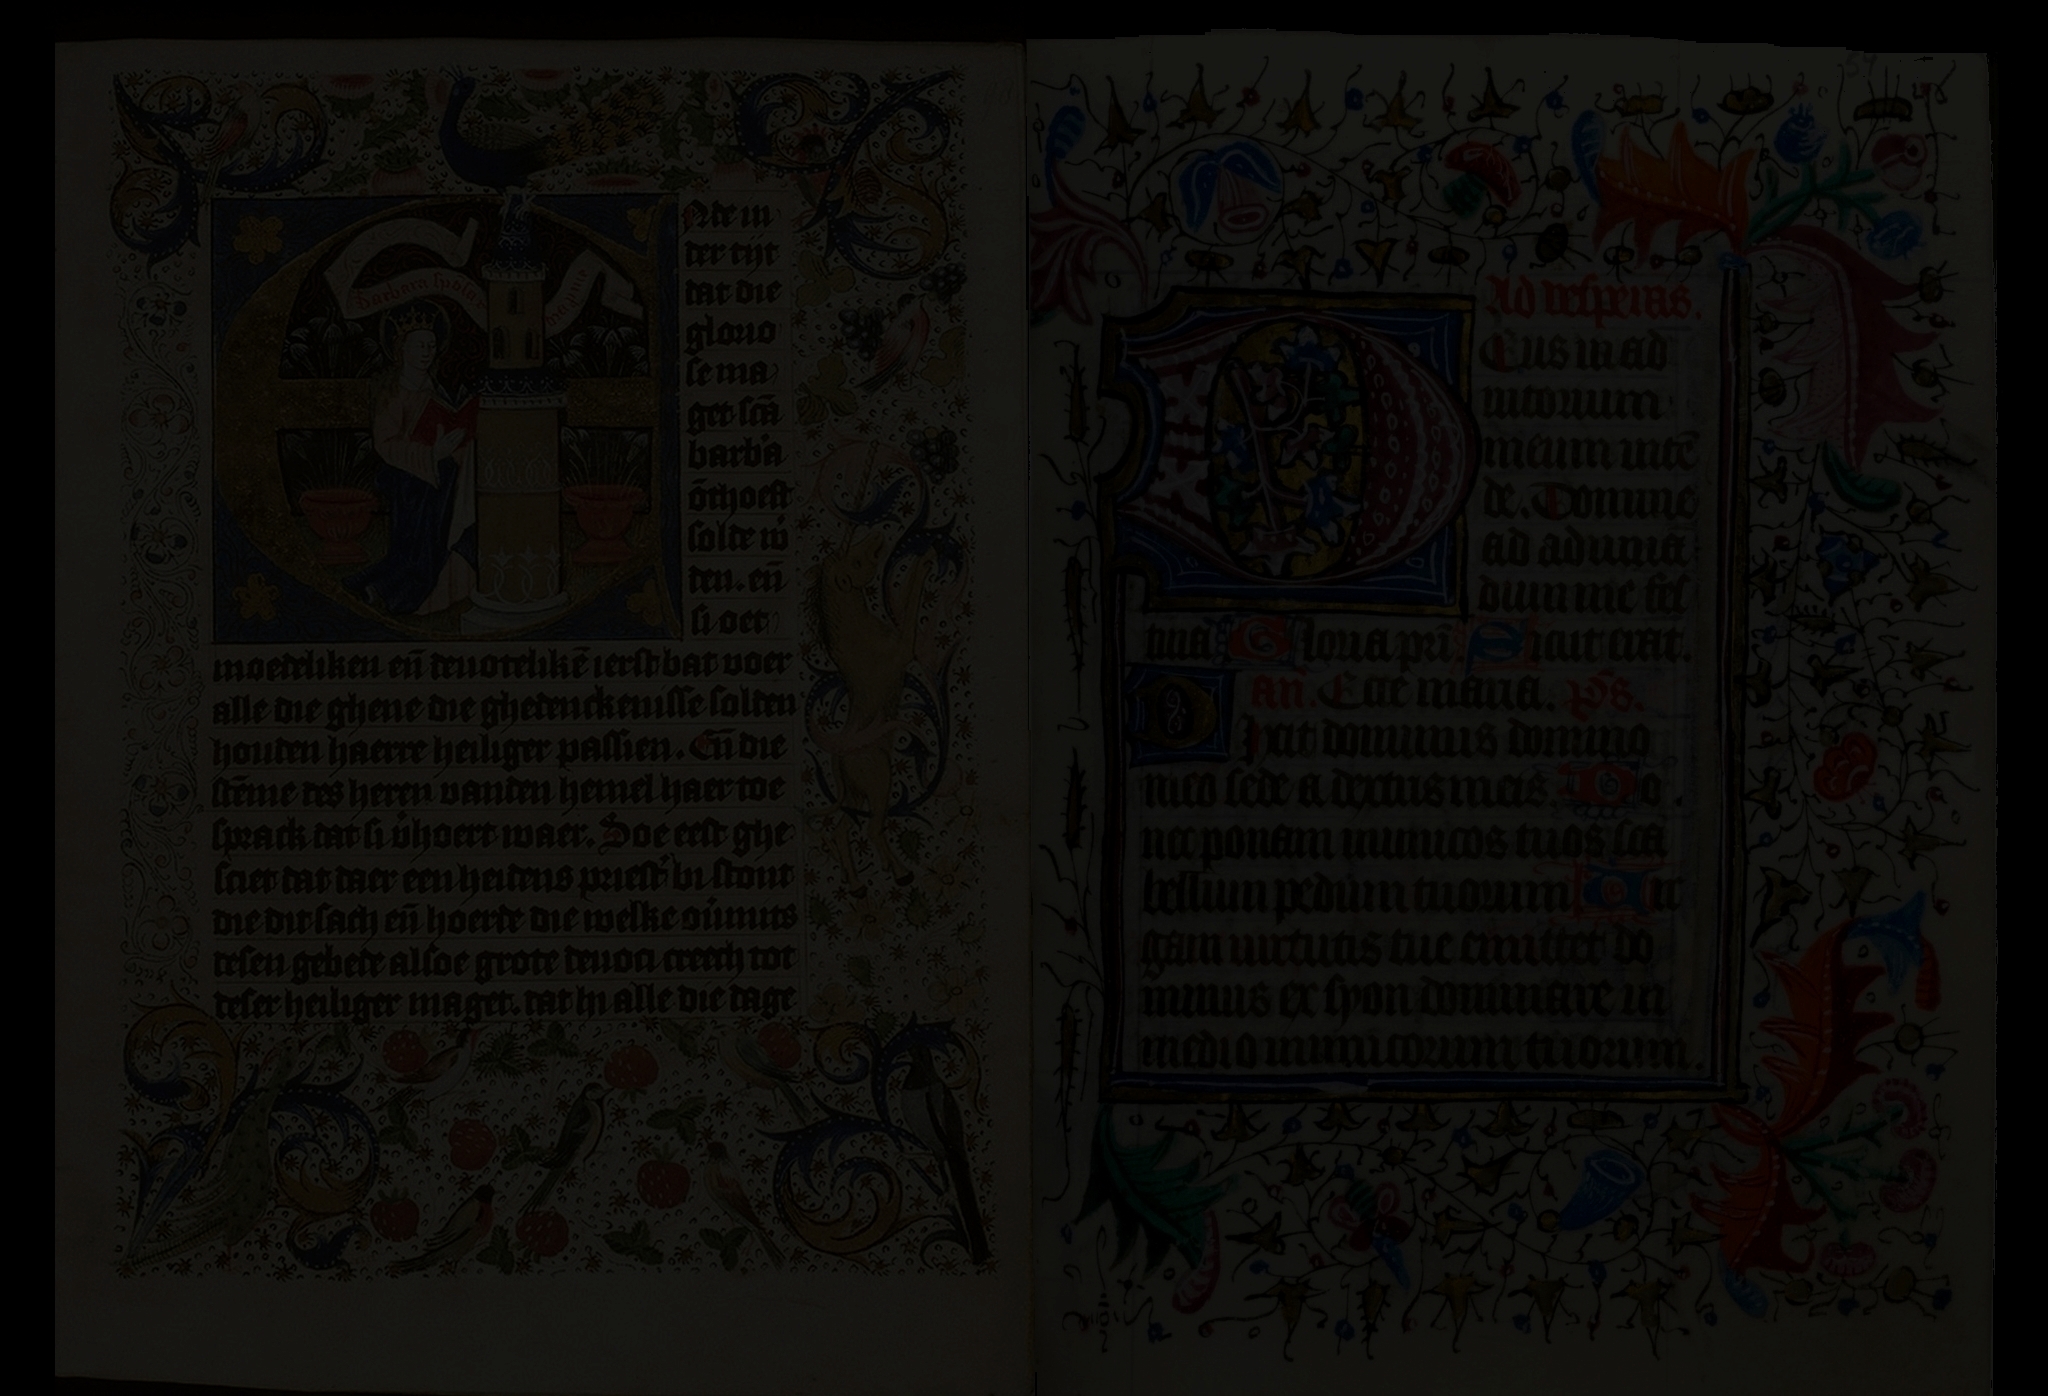 Barbara hids
maghet
N de in
der tijt
dat die
glorio
se ma
get scā
barba
ōthoeft
solde w̄
den. eñ
si oet
moedeliken eñ deuotelikē ierst bat voer
alle die ghene die ghedenckenisse solden
houden haerre heiliger passien. Eñ die
stēme des heren vanden hemel haer toe
sprack dat si v̄hoert waer. Soe eest ghe
sciet dat daer een heidens priest bi stont
die dit sach eñ hoerde die welke ouimits
desen gebede alsoe grote deuoci creech tot
deser heiliger maget. dat hi alle die dage
Ad vesperas.
Eus in ad
iutorium
meum intē
de. Domine
ad adiuua
dum me fes
tina Gloria pri Sicut erat.
an. Ecce maria. Ps.
Dixit dominus domino
meo sede a dextris meis. Do .
nec ponam inimicos tuos sca
bellum pedum tuorum Uir
gam uirtutis tue emittet do
minus ex syon dominare in
medio inimicorum tuorum.